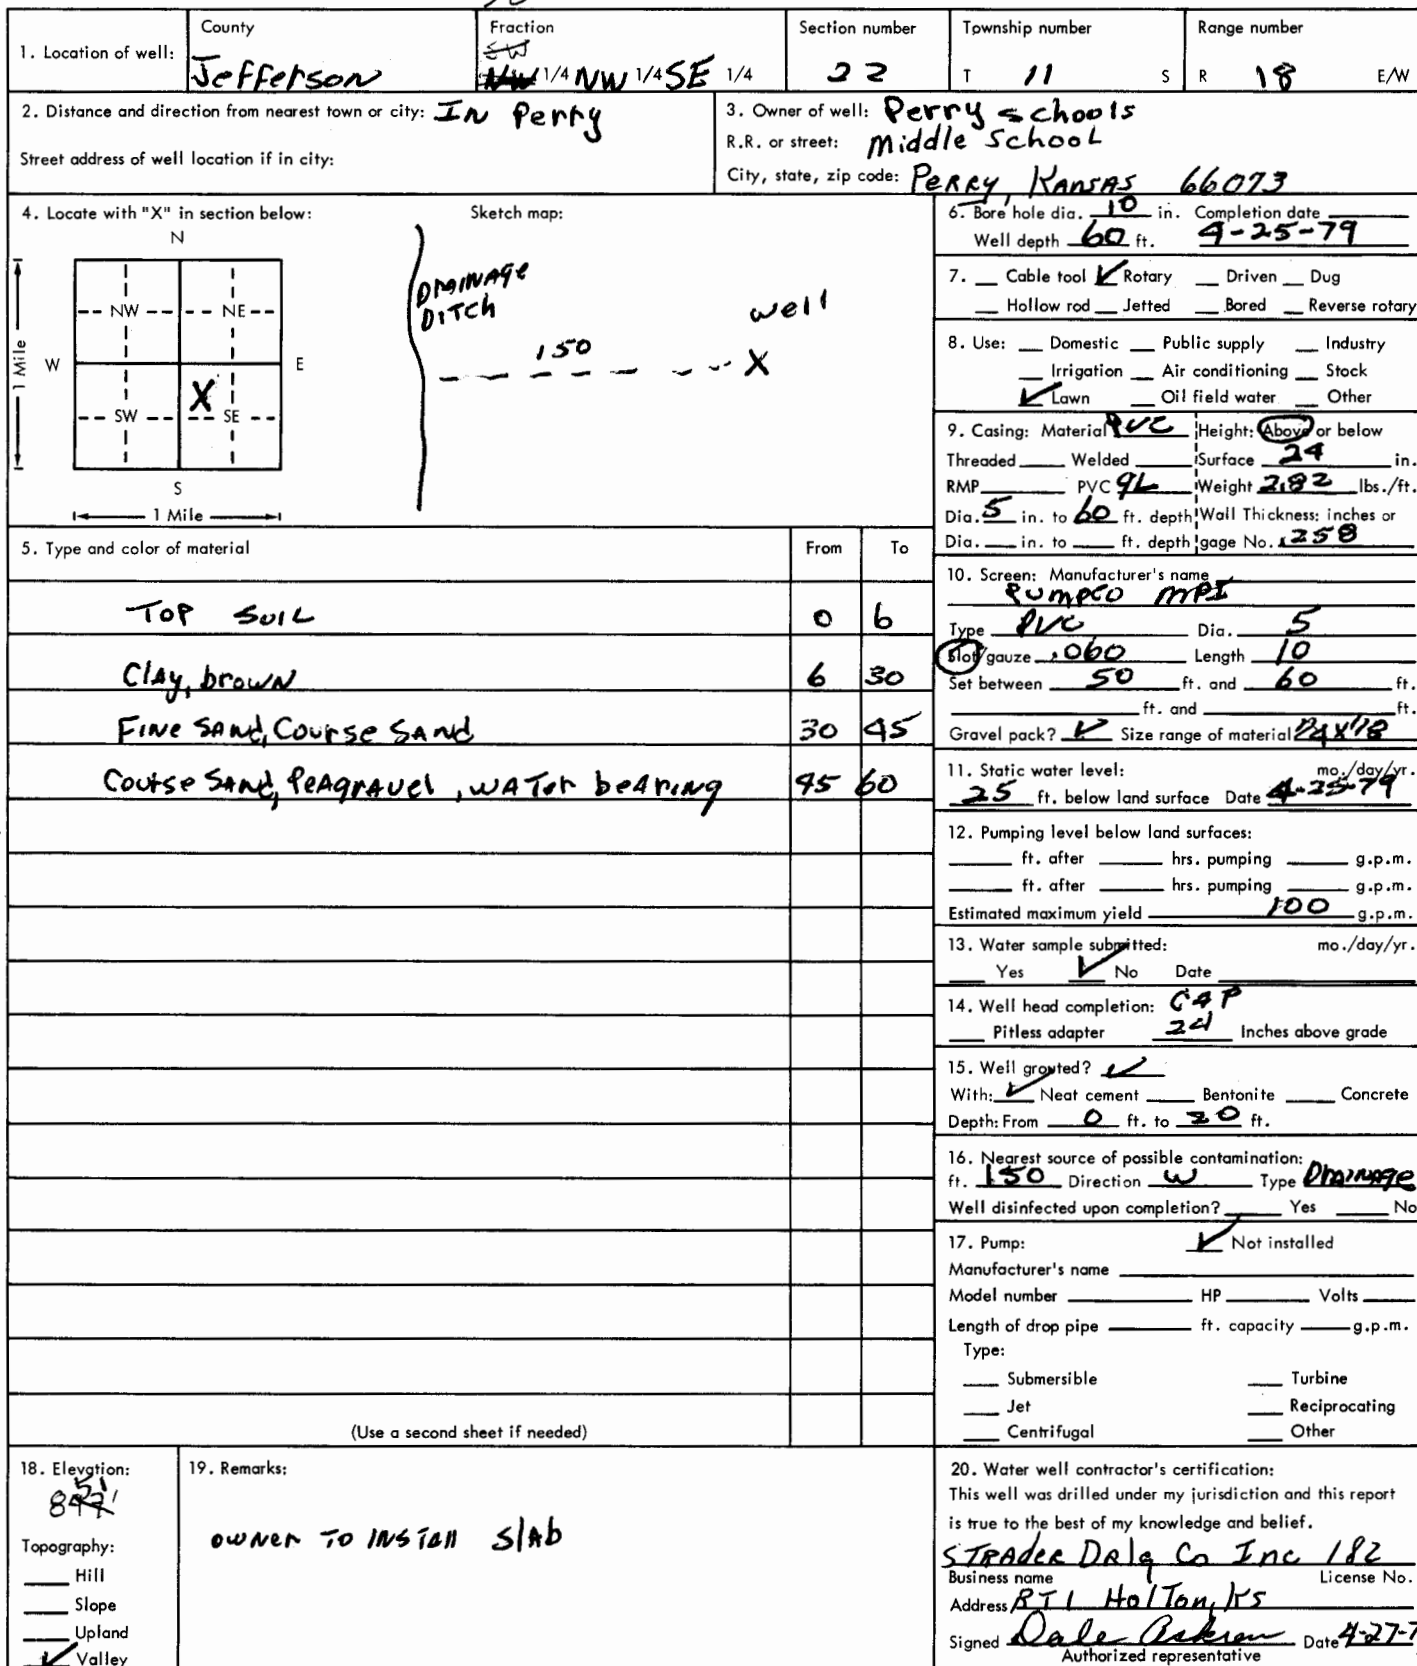 County Fraction Section number Township number Range number
SW
1. Location of well: Jefferson NW 1/4 NW 1/4 SE 1/4 22 T 11 S R 18 E/W
2. Distance and direction from nearest town or city: IN Perry
Street address of well location if in city:
3. Owner of well: Perry schools
R.R. or street: Middle School
City, state, zip code: Perry, Kansas 66073
4. Locate with "X" in section below: Sketch map:
N
NW NE
W E
1 Mile
X
SW SE
S
1 Mile
DRAINAGE
DITCH
well
150
X
5. Type and color of material From To
TOP SOIL 0 6
Clay, brown 6 30
Fine Sand, Course Sand 30 45
Course Sand, Peagravel, water bearing 45 60
(Use a second sheet if needed)
6. Bore hole dia. 10 in. Completion date
Well depth 60 ft. 4-25-79
7. Cable tool ✓ Rotary Driven Dug
Hollow rod Jetted Bored Reverse rotary
8. Use: Domestic Public supply Industry
Irrigation Air conditioning Stock
✓ Lawn Oil field water Other
9. Casing: Material PVC Height: Above or below
Threaded Welded Surface 24 in.
RMP PVC GL Weight 2.82 lbs./ft.
Dia. 5 in. to 60 ft. depth Wall Thickness: inches or
Dia. in. to ft. depth gage No. .258
10. Screen: Manufacturer's name
Pumpco MPI
Type PVC Dia. 5
Slot/gauze .060 Length 10
Set between 50 ft. and 60 ft.
ft. and ft.
Gravel pack? ✓ Size range of material
11. Static water level: mo./day/yr.
25 ft. below land surface Date 4-25-79
12. Pumping level below land surfaces:
ft. after hrs. pumping g.p.m.
ft. after hrs. pumping g.p.m.
Estimated maximum yield 100 g.p.m.
13. Water sample submitted: mo./day/yr.
Yes ✓ No Date
14. Well head completion: CAP
Pitless adapter 24 Inches above grade
15. Well grouted? ✓
With: ✓ Neat cement Bentonite Concrete
Depth: From 0 ft. to 20 ft.
16. Nearest source of possible contamination:
ft. 150 Direction W Type Drainage
Well disinfected upon completion? Yes No
17. Pump: ✓ Not installed
Manufacturer's name
Model number HP Volts
Length of drop pipe ft. capacity g.p.m.
Type:
Submersible Turbine
Jet Reciprocating
Centrifugal Other
18. Elevation:
51
847'
Topography:
Hill
Slope
Upland
✓ Valley
19. Remarks:
OWNER TO INSTALL SLAB
20. Water well contractor's certification:
This well was drilled under my jurisdiction and this report
is true to the best of my knowledge and belief.
STRADER DRLG Co Inc 182
Business name License No.
Address RT1 Holton, KS
Signed Dale Askren Date 4-27-7
Authorized representative